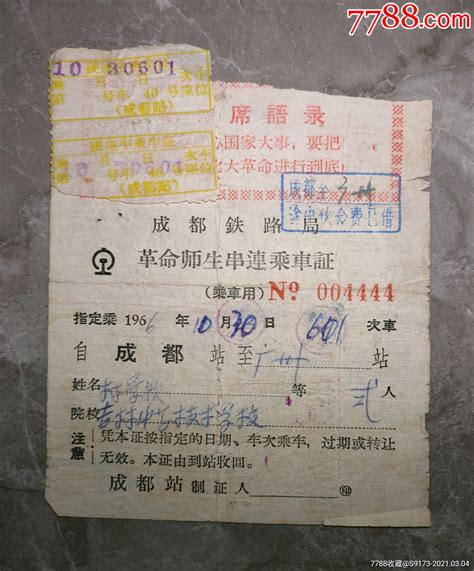 7788.com
10 30601
号车 40 号座位
(成都站)
(成都站)
席語录
心国家大事，要把
大革命进行到底！
成都至广州
途中伙食费已借
成都鉄路局
革命师生串連乘車証
(乘車用) № 004444
指定乘 1966 年 10 月 30 日 601 次車
自 成都 站至 广州 站
姓名 等 弍 人
院校
注意 凭本证按指定的日期、车次乘车，过期或转让
无效。本证由到站收回。
成都站 制証人 印
7788收藏@S9173-2021.03.04